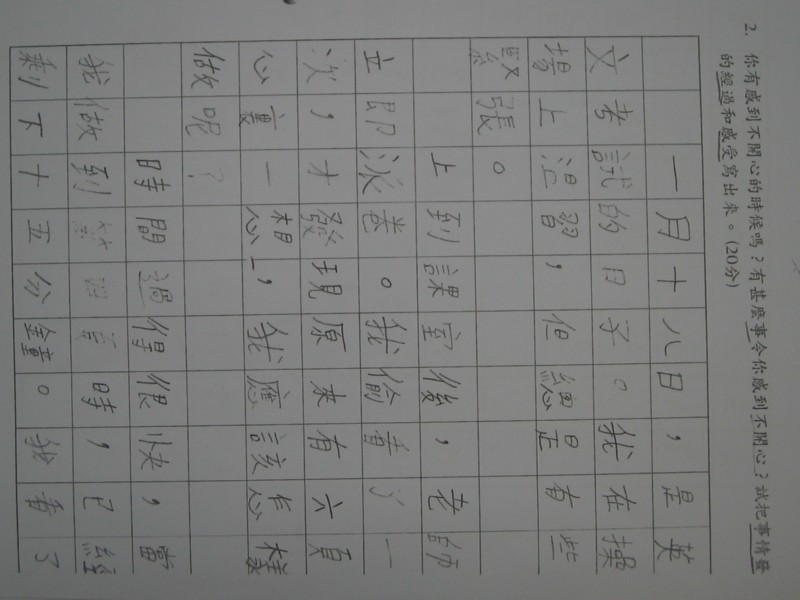 2. 你有感到不開心的時候嗎？有甚麼事令你感到不開心？試把事情發
的經過和感受寫出來。(20分)
一月十八日，是英
文考試的日子。我在操
場上温習，但總是有些
緊張。
上到課室後，老師
立即派卷。我偷看了一
次，才發現原來有六頁
心裏一想，我應該怎樣
做呢？
時間過得很快，當
我做到時，已經
剩下十五份鐘。我看了